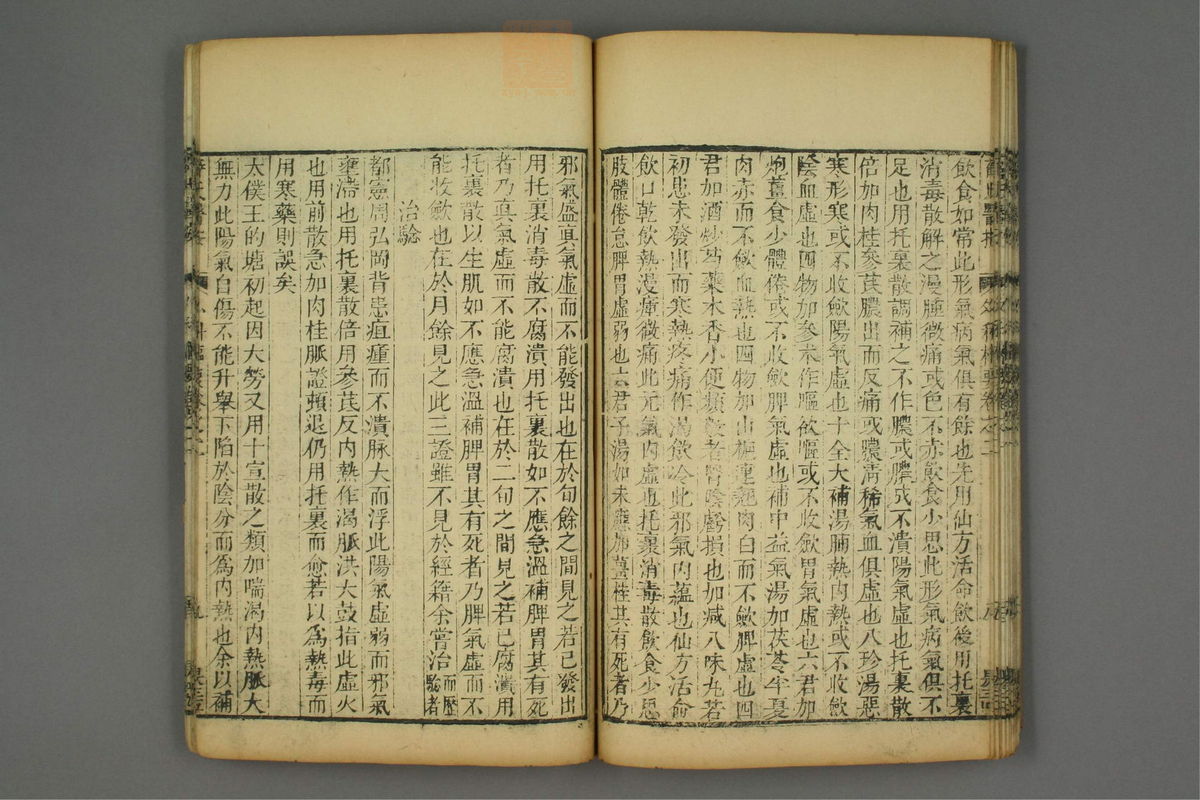 飲食如常此形氣病氣俱有餘也先用仙方活命飲後用托裏
消毒散解之漫腫微痛或色不赤飲食少思此形氣病氣俱不
足也用托裏散調補之不作膿或膿成不潰陽氣虛也托裏散
倍加肉桂參芪膿出而反痛或膿清稀氣血俱虛也八珍湯惡
寒形寒或不收斂陽氣虛也十全大補湯晡熱內熱或不收斂
陰血虛也四物加參朮作嘔欲嘔或不收斂胃氣虛也六君加
炮薑食少體倦或不收斂脾氣虛也補中益氣湯加茯苓半夏
肉赤而不斂血熱也四物加山梔連翹肉白而不斂脾虛也四
君加酒炒芍藥木香小便頻數者腎陰虧損也加減八味丸若
初患未發出而寒熱疼痛作渴飲冷此邪氣內蘊也仙方活命
飲口乾飲熱漫腫微痛此元氣內虛也托裏消毒散飲食少思
肢體倦怠脾胃虛弱也六君子湯如未應加薑桂其有死者乃
邪氣盛真氣虛而不能發出也在於旬餘之間見之若已發出
用托裏消毒散不腐潰用托裏散如不應急溫補脾胃其有死
者乃真氣虛而不能腐潰也在於二旬之間見之若已腐潰用
托裏散以生肌如不應急溫補脾胃其有死者乃脾氣虛而不
能收斂也在於月餘見之此三證雖不見於經籍余嘗治而歷驗者
治驗
都憲周弘岡背患疽腫而不潰脉大而浮此陽氣虛弱而邪氣
壅滯也用托裏散倍用參芪反內熱作渴脈洪大鼓指此虛火
也用前散急加肉桂脈證頓退仍用托裏而愈若以為熱毒而
用寒藥則誤矣
太僕王的塘初起因大勞又用十宣散之類加喘渴內熱脈大
無力此陽氣自傷不能升舉下陷於陰分而為內熱也余以補